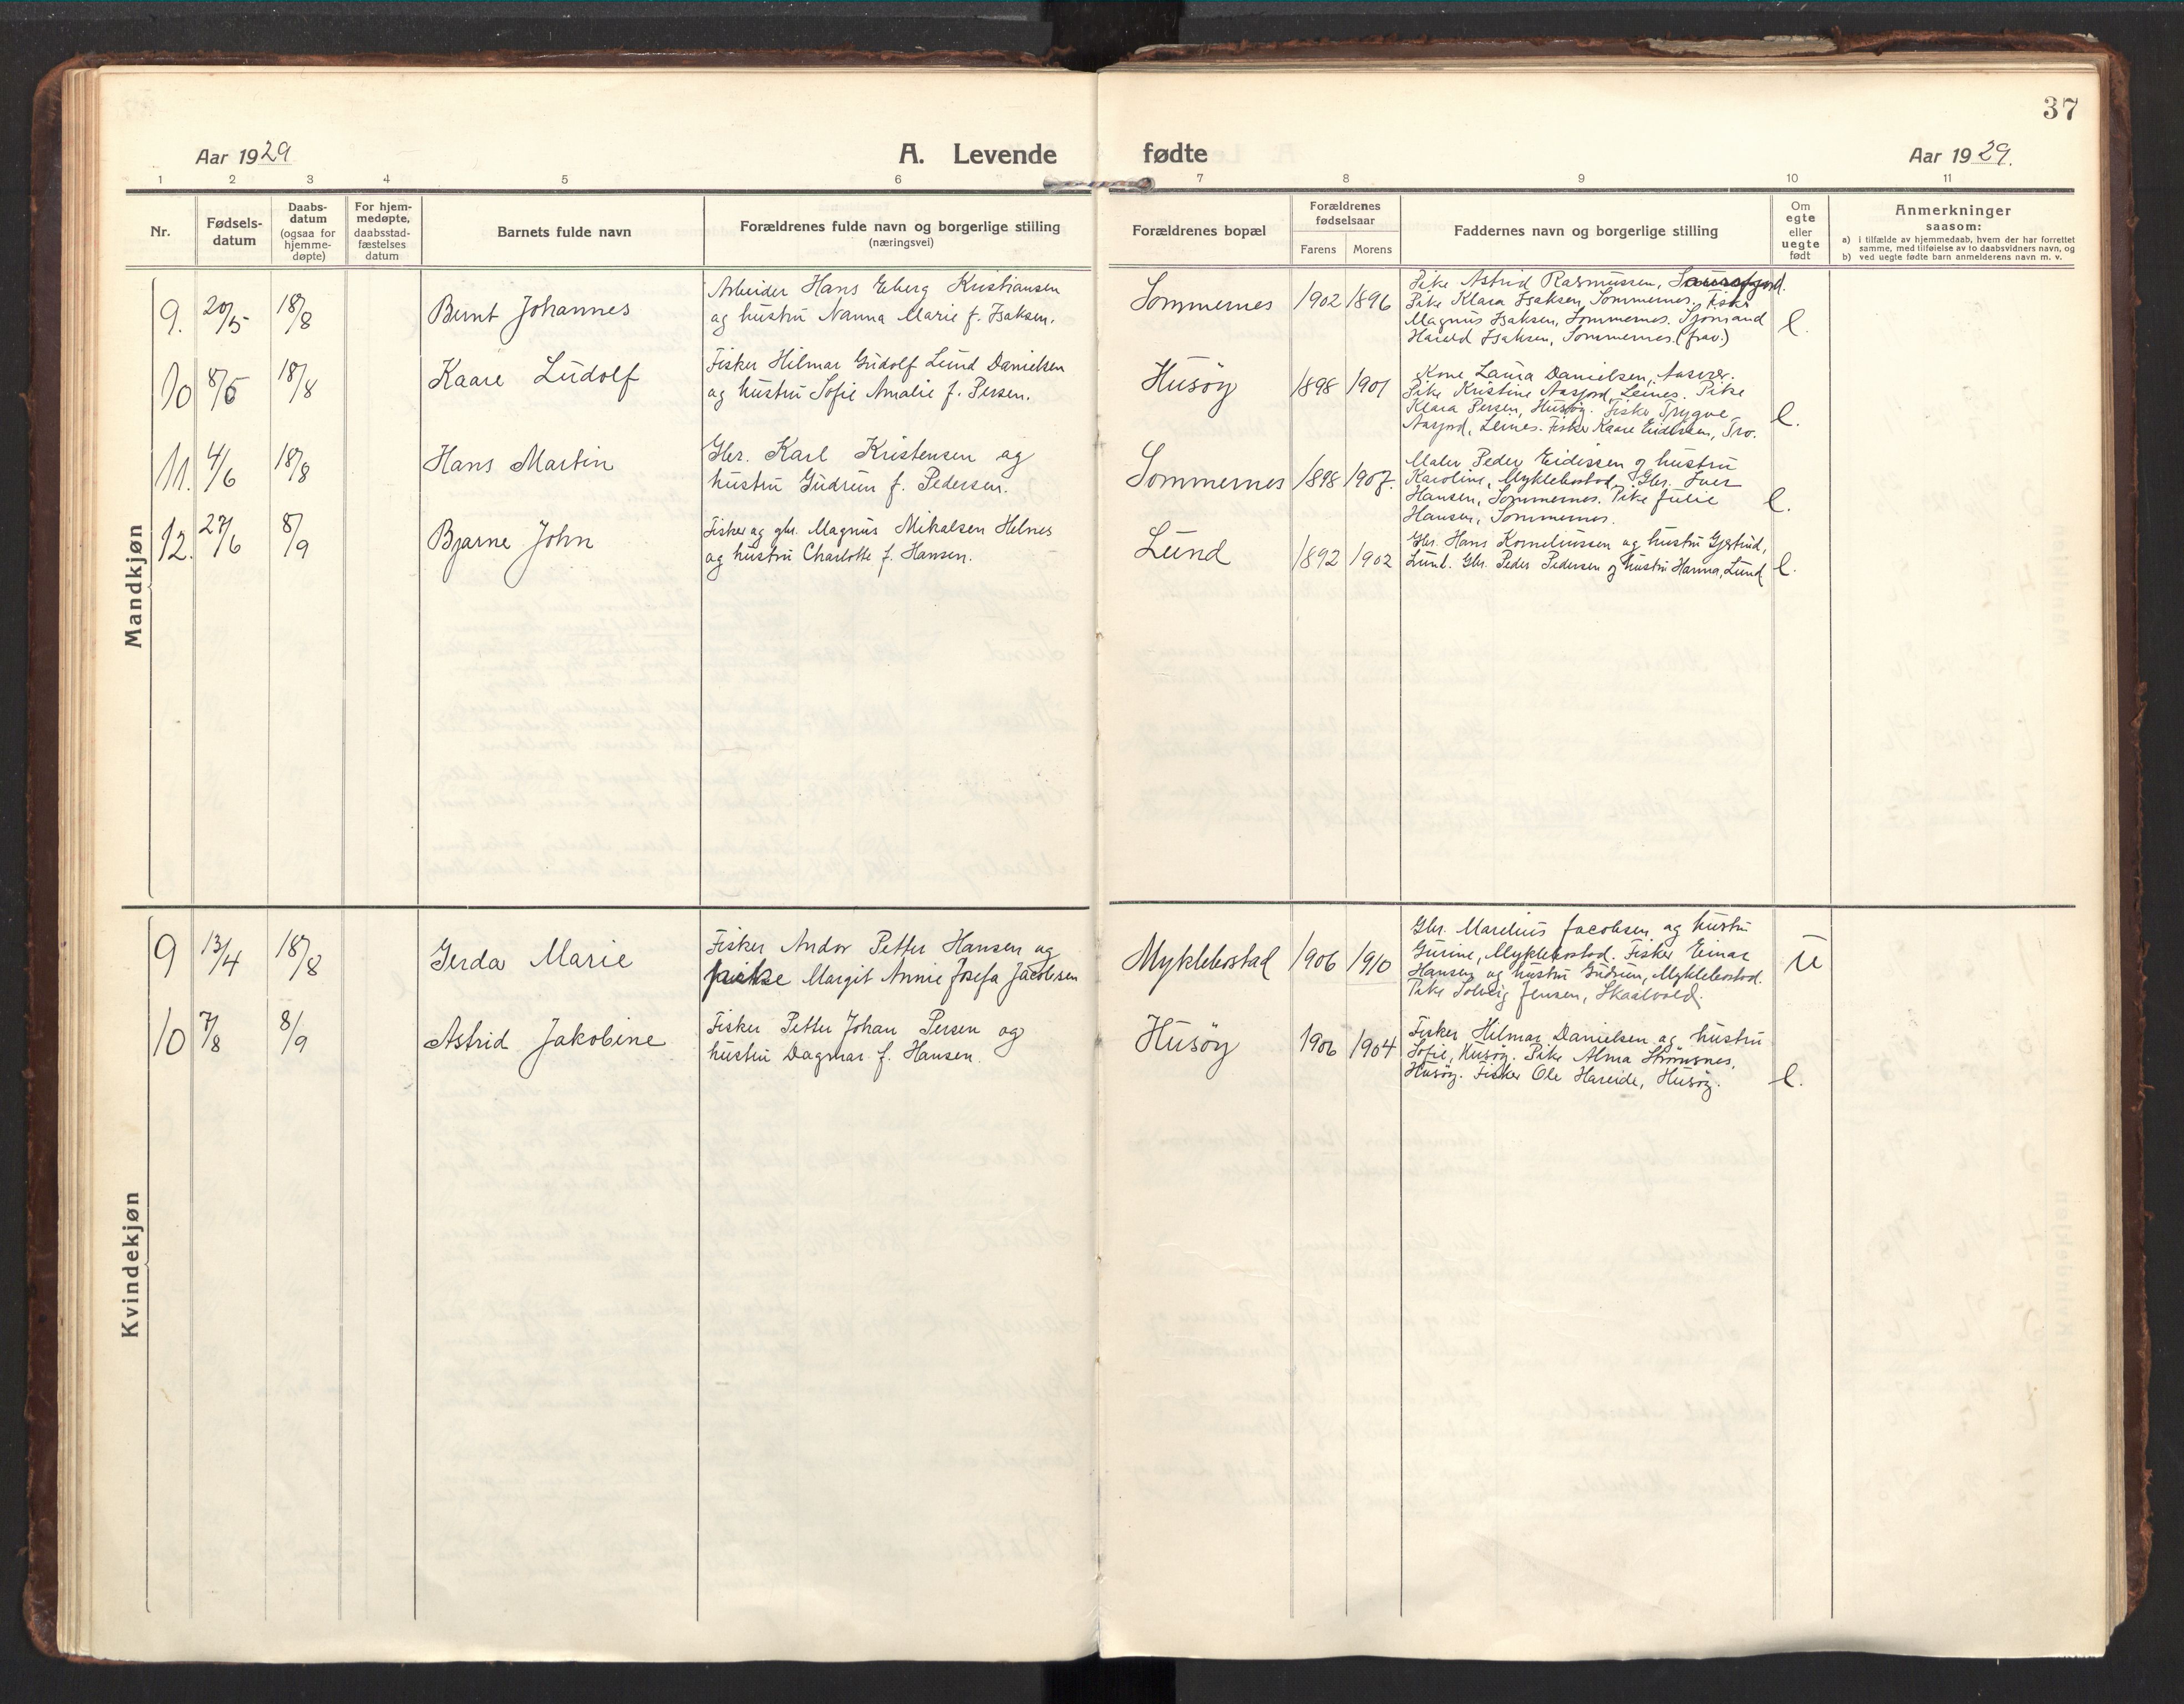 37
Aar 1929
A. Levende fødte
Aar 1929.
1 2 3 4 5 6 7 8 9 10 11
Nr.
Fødsels-
datum
Daabs-
datum
(ogsaa for
hjemme-
døpte)
For hjem-
medøpte,
daabsstad-
fæstelses
datum
Barnets fulde navn
Forældrenes fulde navn og borgerlige stilling
(næringsvei)
Forældrenes bopæl
Forældrenes
fødselsaar
Farens Morens
Faddernes navn og borgerlige stilling
Om
egte
eller
uegte
født
Anmerkninger
saasom:
a) i tilfælde av hjemmedaab, hvem der har forrettet
samme, med tilføielse av to daabsvidners navn, og
b) ved uegte fødte barn anmelderens navn m. v.
Mandkjøn
9. 20/5 18/8
Bernt Johannes
Arbeider Hans Eberg Kristiansen
og hustru Nanna Marie f. Isaksen.
Sommernes 1902 1896
Pike Astrid Rasmussen,
Pike Klara Isaksen, Sommernes. Fisker
Magnus Isaksen, Sommernes. Sjömand
Harald Isaksen, Sommernes. (frav.)
e.
10 8/5 18/8
Kaare Ludolf
Fisker Hilmar Gudolf Lund Danielsen
og hustru Sofie Amalie f. Persen.
Husöy 1898 1901
Kone Laura Danielsen, Aasvær.
Pike Kristine Aasjord, Leines. Pike
Klara Persen, Husöy. Fisker Trygve
Aasjord, Leines. Fisker Kaare Eidissen, Tro.
e.
11. 4/6 18/8
Hans Martin
Gbr. Karl Kristensen og
hustru Gudrun f. Pedersen.
Sommernes 1898 1907.
Maler Peder Eidissen og hustru
Karoline, Myklebostad. Gbr. Iver
Hansen, Sommernes. Pike Julie
Hansen, Sommernes.
e.
12. 27/6 8/9
Bjarne John
Fisker og gbr. Magnus Mikalsen Helnes
og hustru Charlotte f. Hansen.
Lund 1892 1902
Gbr. Hans Korneliussen og hustru Gjertrud,
Lund. Gbr. Peder Pedersen og hustru Hanna, Lund
e.
Kvindekjøn
9 13/4 18/8
Gerda Marie
Fisker Andor Petter Hansen og
pike Margit Annie Josefa Jacobsen
Myklebostad 1906 1910
Gbr. Marelius Jacobsen og hustru
Gurine, Myklebostad. Fisker Einar
Hansen og hustru Gudrun, Myklebostad.
Pike Solveig Jensen, Skaalvold.
u
10 7/8 8/9
Astrid Jakobine
Fisker Petter Johan Persen og
hustru Dagmar f. Hansen.
Husöy 1906 1904
Fisker Hilmar Danielsen og hustru
Sofie, Husöy. Pike Alma Strömsnes,
Husöy. Fisker Ole Hareide, Husöy.
e.